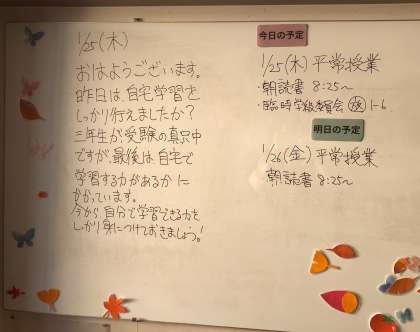 1/25(木)
おはようございます。
昨日は、自宅学習を
しっかり行えましたか?
三年生が、受験の真只中
ですが、最後は自宅で
学習する力があるかに
かかっています。
今から自分で学習できる力を
しっかり身につけておきましょう。!
今日の予定
1/25(木)平常授業
・朝読書 8:25〜
・臨時学級委員会 放 1-6
明日の予定
1/26(金)平常授業
朝読書 8:25〜